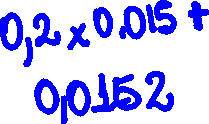 0,2x0.015+
0,0152